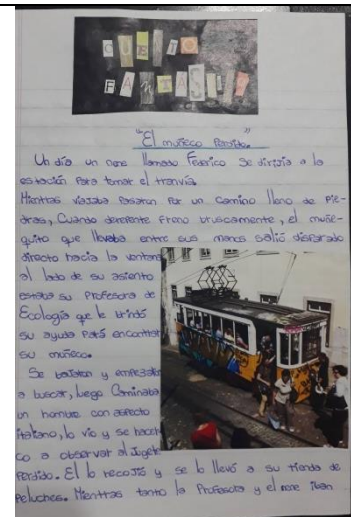 CUENTO
FANTASTI?
"El muñeco Perdido."
Un día un nene llamado Federico se dirijía a la
estación Para tomar el tranvía.
Mientras viajaba Pasaron Por un Camino lleno de Pie-
dras, Cuando derepente Freno bruscamente, el muñe-
quito que llevaba entre sus manos salió disparado
directo hacia la ventana
al lado de su asiento
estaba su Profesora de
Ecología que le brindó
su ayuda Para encontrar
su muñeco.
Se bajaron y empezaron
a buscar, luego Caminaba
un hombre con aspecto
italiano, lo vio y se
co a observar al Jugete
Perdido. El lo recojió y se lo llevó a su tienda de
Peluches. Mientras tanto la Profesora y el nene iban